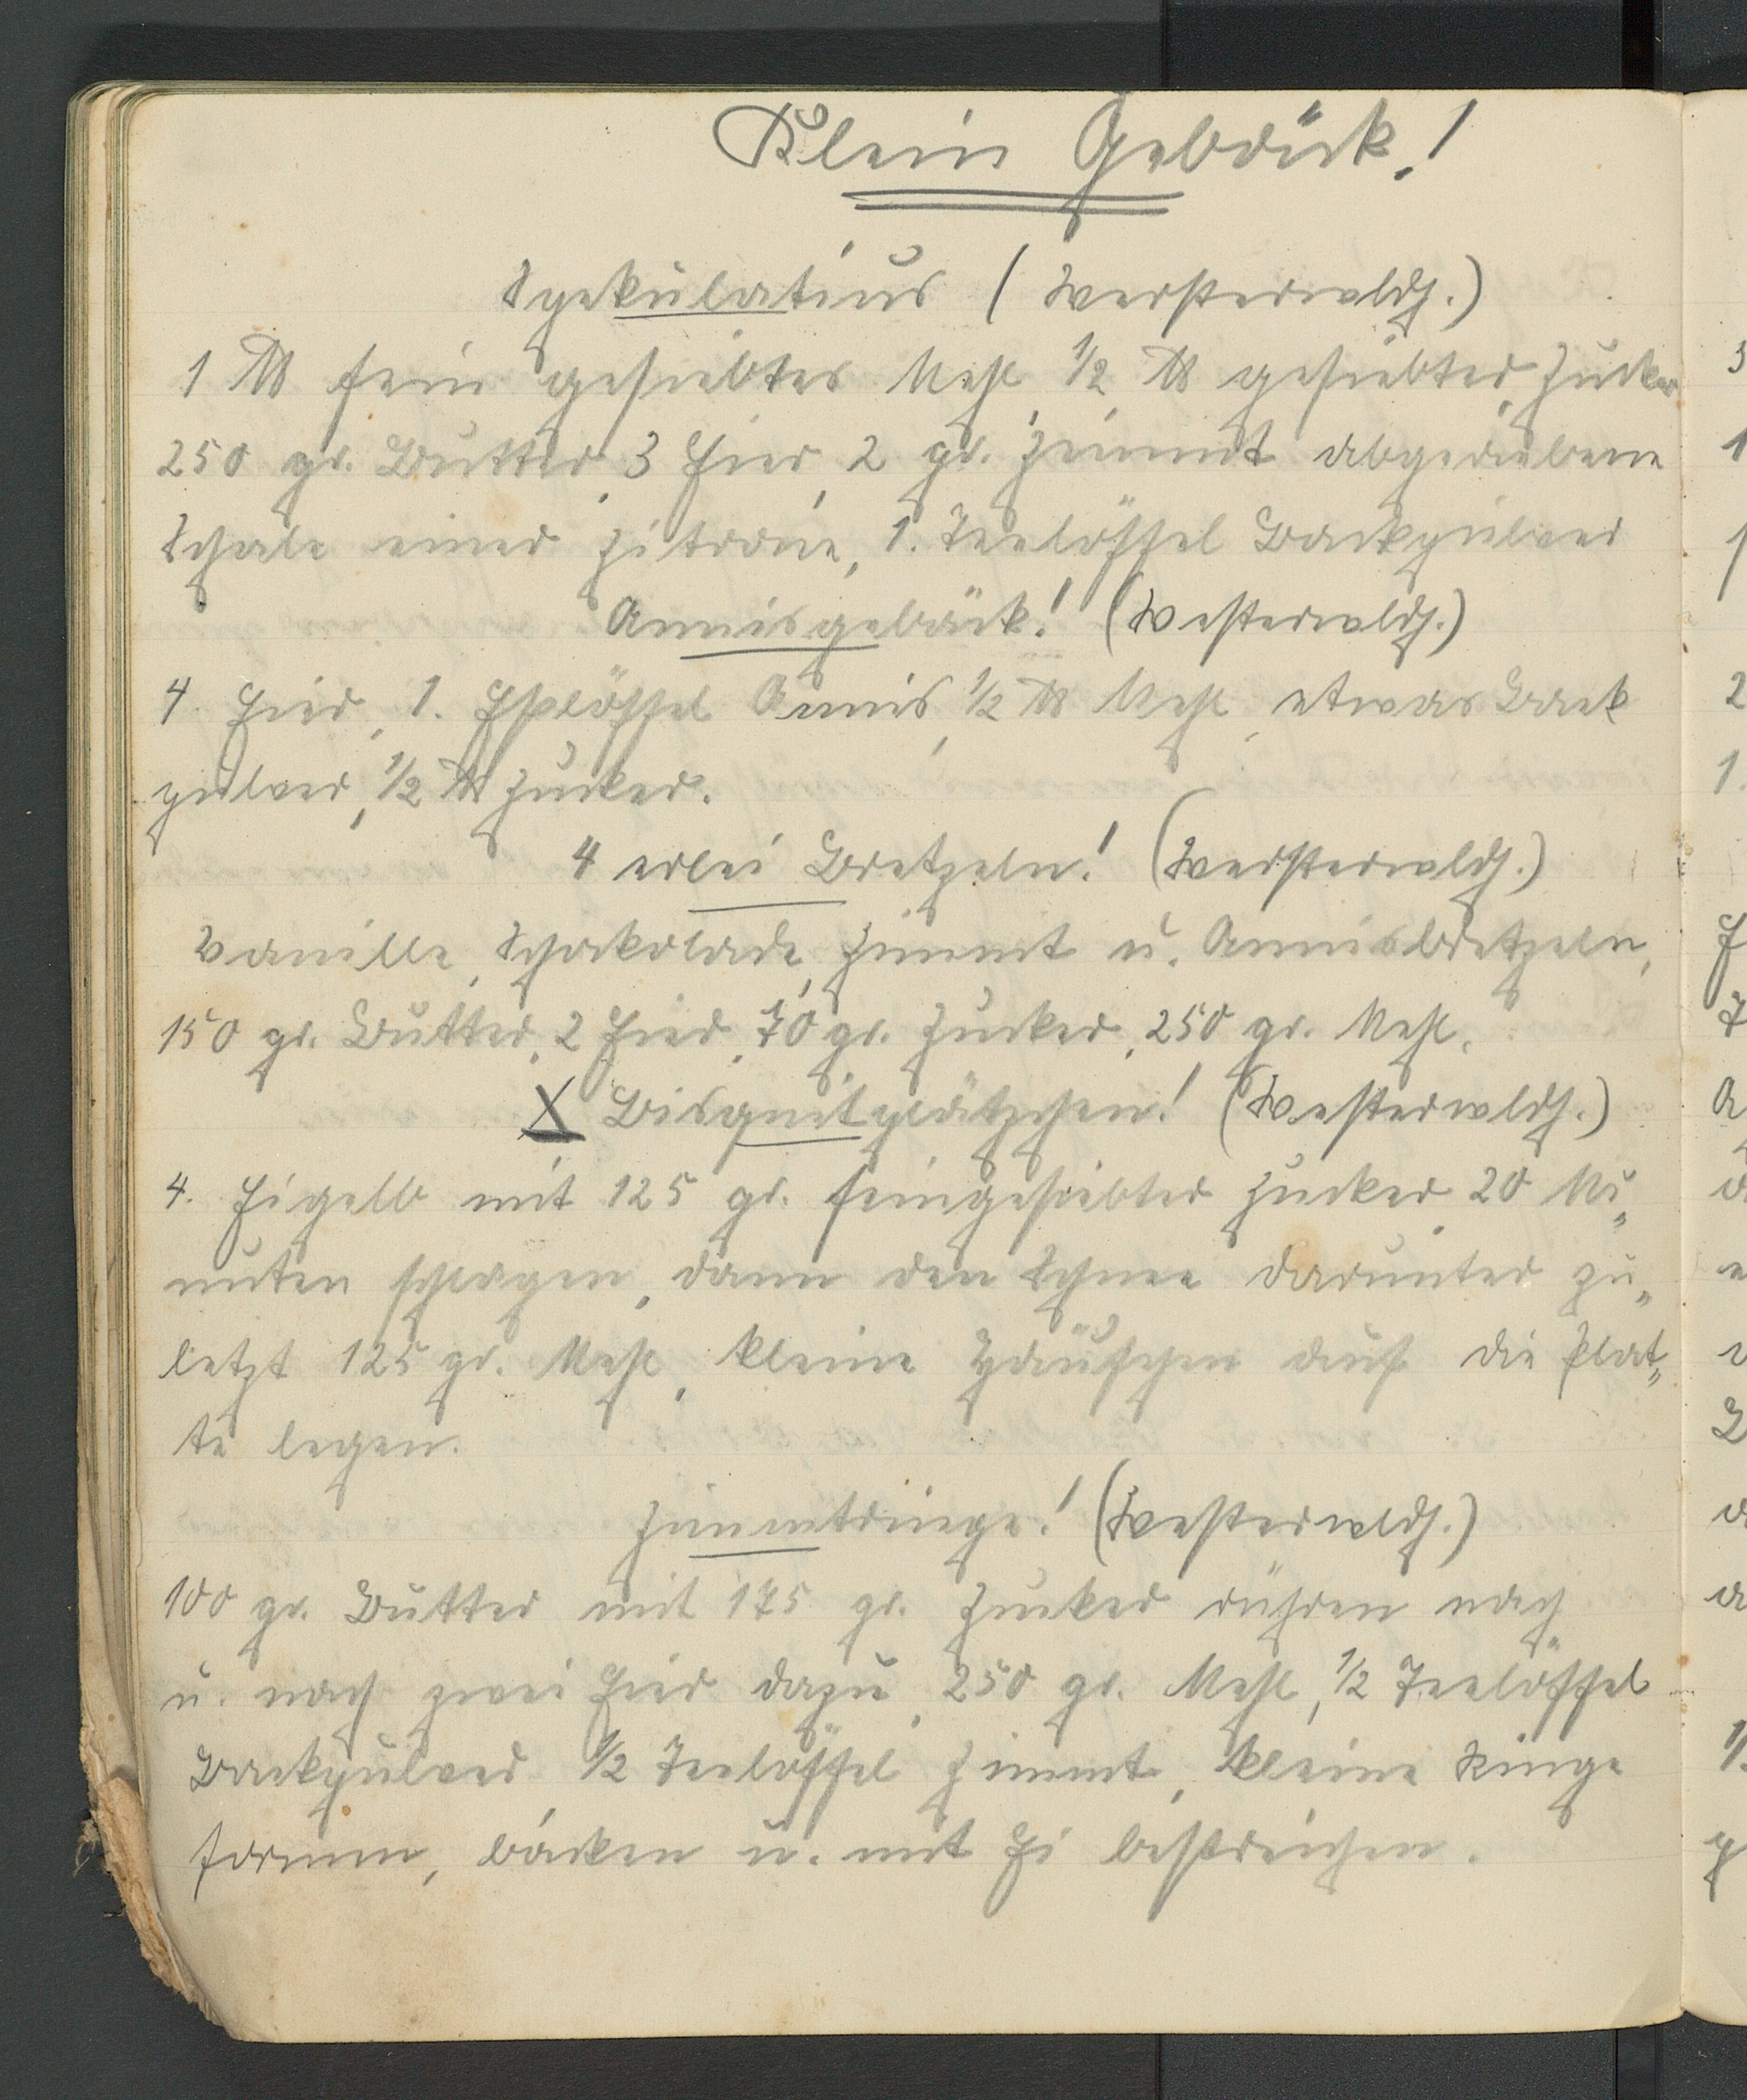 Klein Gebäck!
Spekulatius (Westerwaldh.)
1 ℔ fein gesiebtes Mehl, 1/2 ℔ gesiebter Zucker
250 gr. Butter, 3 Eier, 2 gr. Zimmt abgeriebene
Schale einer Zitrone, 1. Teelöffel Backpulver
Annisgebäck! (Westerwaldh.)
4. Eier, 1. Eßlöffel Annis, 1/2 ℔ Mehl, etwas Back
pulver, 1/2 ℔ Zucker.
4 erlei Bretzeln! (Westerwaldh.)
Vanille, Schokolade, Zimmt u. Annisbretzeln,
150 gr. Butter, 2 Eier, 70 gr. Zucker, 250 gr. Mehl.
X Bisquitplätzchen! (Westerwldh.)
4. Eigelb mit 125 gr. feingesiebter Zucker 20 Mi„
nuten schlagen, dann den Schnee darunter zu„
letzt 125 gr. Mehl, kleine Häufchen auf die Plat„
te legen.
Zimmtringe! (Westerwldh.)
100 gr. Butter mit 175 gr. Zucker rühren nach
u. nach zwei Eier dazu, 250 gr. Mehl, 1/2 Teelöffel
Backpulver 1/2 Teelöffel Zimmt, kleine Ringe
formen, backen u. mit Ei bestreichen.